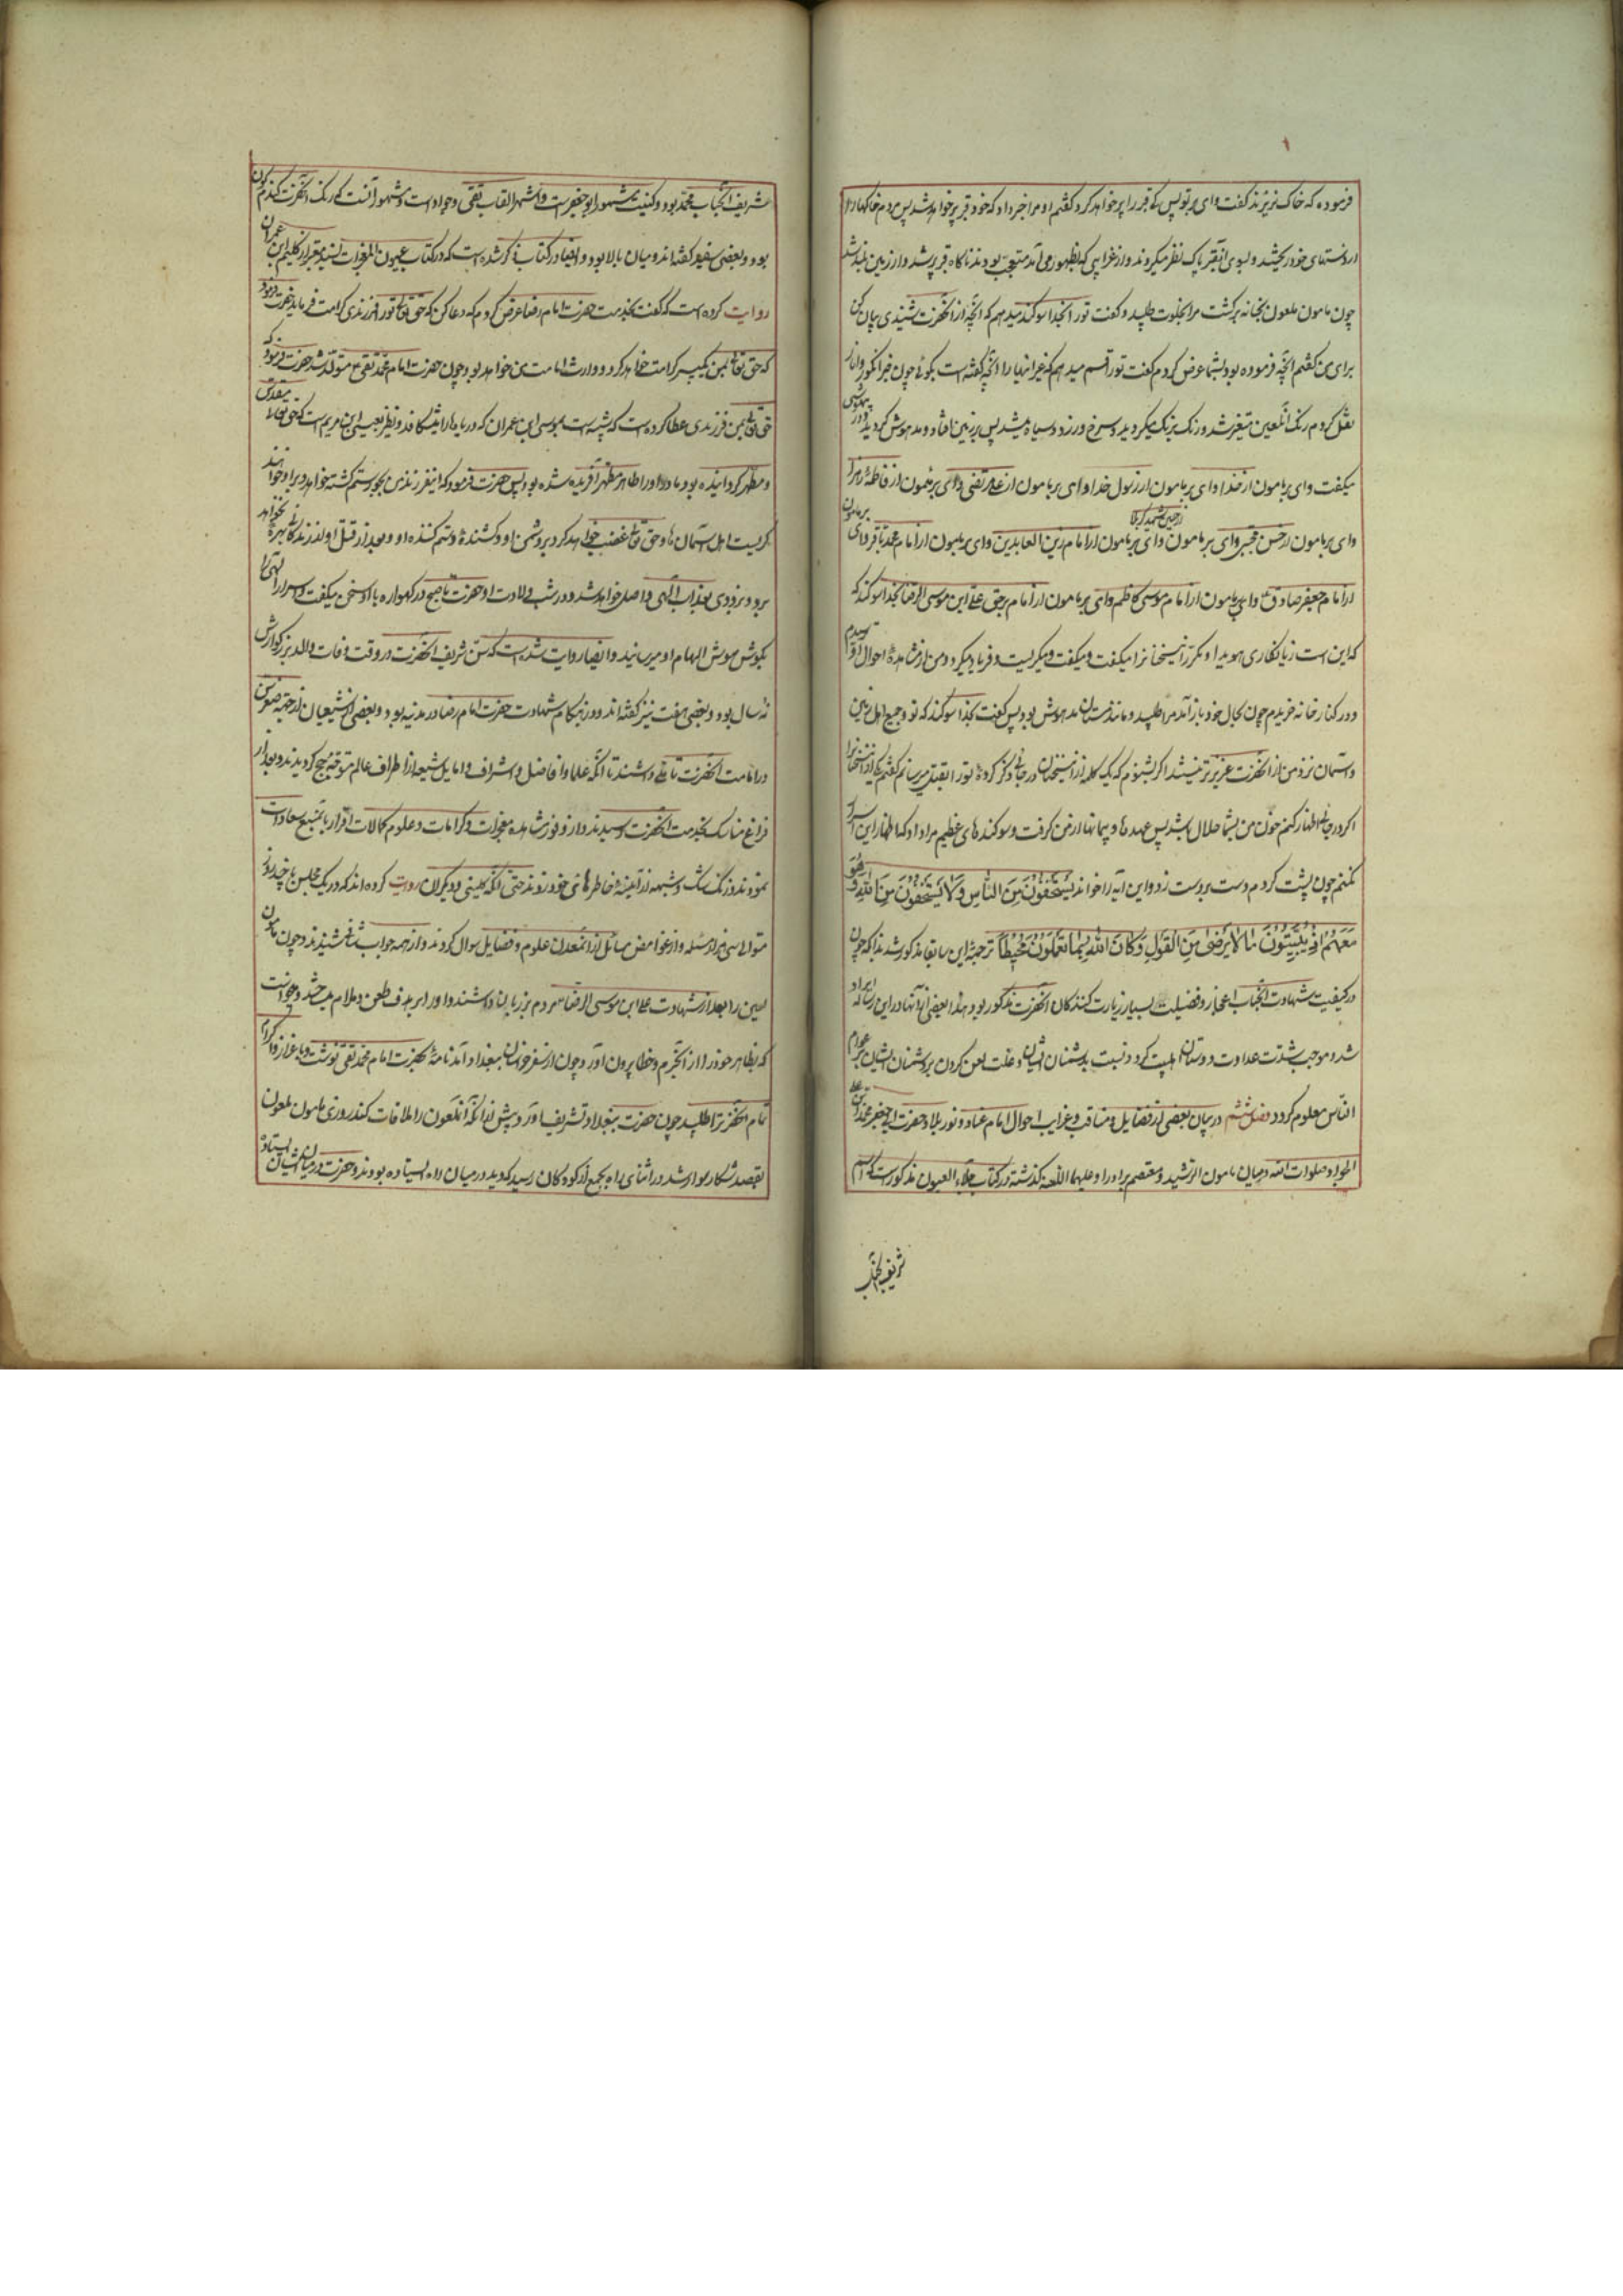 فرموده که خاک نریزند گفت وای بر تو پس که قبر را پر خواهد کرد گفتم او مرا خبر داد که خود قبر پر خواهد شد پس مردم خاکها را
از دستهای خود ریختند و بسوی آن قبر پاک نظر میکردند و از غرایبی که بظهور می آمد متعجب بودند ناگاه قبر پر شد و از زمین بلند شد
چون مامون ملعون بخانه برگشت مرا بخلوت طلبید و گفت ترا بخدا سوگند میدهم که آنچه از آنحضرت شنیدی بیان کن
برای من گفتم آنچه فرموده بود بشما عرض کردم گفت ترا قسم میدهم که غیر اینها را آنچه گفته است بگوئی چون خبر انگور و انار
نقل کردم رنگ آن لعین متغیر شد و رنگ برنگ میگردید و سرخ و زرد و سیاه میشد پس بر زمین افتاد و مدهوش گردید و در بیهوشی
میگفت وای بر مامون از خدا وای بر مامون از رسول خدا وای بر مامون از علی مرتضی وای بر مامون از فاطمه زهرا
وای بر مامون از حسن مجتبی وای بر مامون از حسین شهید کربلا وای بر مامون از امام زین العابدین وای بر مامون از امام محمد باقر وای بر مامون
از امام جعفر صادق وای بر مامون از امام موسی کاظم وای بر مامون از امام برحق علی ابن موسی الرضا بخدا سوگند که
که این است زیانکاری هویدا و مکرر این سخنان را میگفت و میگریست و فریاد میکرد و من از مشاهده احوال او ترسیدم
و در کنار خانه خزیدم چون بحال خود باز آمد مرا طلبید و مانند مستان مدهوش بود پس گفت بخدا سوگند که تو و جمیع اهل زمین
و آسمان نزد من از آنحضرت عزیزتر نیستید اگر بشنوم که یک کلمه از این سخنان در جائی ذکر کرده ترا بقتل میرسانم گفتم اگر از این سخنان
اگر در جائی اظهار کنم خون من بشما حلال باشد پس عهدها و پیمانها از من گرفت و سوگندهای عظیم مرا داد که اظهار این اسرار
نکنم چون پشت کردم دست بر دست زد و این آیه را خواند یَسْتَخْفُونَ مِنَ النَّاسِ وَلَا یَسْتَخْفُونَ مِنَ اللَّهِ وَهُوَ
مَعَهُمْ اِذْ یُبَیِّتُونَ مَا لَا یَرْضَی مِنَ الْقَوْلِ وَکَانَ اللَّهُ بِمَا یَعْمَلُونَ مُحِیطًا ترجمه این سابقا مذکور شد بدانکه چون
در کیفیت شهادت آنجناب اعجاز و فضیلت بسیار زیارت کنندگان آنحضرت مذکور بود لهذا بعضی از آنها در این رساله ایراد
شد و موجب شدت عداوت دوستان اهلبیت گردد نسبت بدشمنان ایشان و علت لعن کردن بر دشمنان ایشان بر عوام
الناس معلوم گردد فصل ششم در بیان بعضی از فضایل و مناقب و غرایب احوال امام عباد و نور بلاد حضرت ابی جعفر محمد ابن علی
الجواد صلوات الله و میان مامون الرشید و معتصم برادر او علیهما اللعنة گذشته در کتاب جلاء العیون مذکور است که اسم
شریف آنجناب
شریف آنجناب محمد بود و کنیت مشهور ابو جعفر است و اشهر القاب تقی و جواد است و مشهور آنست که رنگ آنحضرت گندم گون
بود و بعضی سفید گفته اند و میان بالا بود و ایضا در کتاب ذکر شده است که در کتاب عیون المعجزات بسند معتبر از کلیم ابن عمران
روایت کرده است که گفت بخدمت حضرت امام رضا عرض کردم که دعا کن که حق تعالی ترا فرزندی کرامت فرماید حضرت فرمود
که حق تعالی بمن یک پسر کرامت خواهد کرد و وارث امامت من خواهد بود چون حضرت امام محمد تقی متولد شد حضرت فرمود که
حق تعالی بمن فرزندی عطا کرده است که شبیه است بموسی ابن عمران که دریاها را میشکافد و نظیر عیسی ابن مریم است که حق تعالی مقدس
و مطهر گردانیده بود مادر او را طاهر و مطهر آفریده شده بود پس حضرت فرمود که این فرزند من بجور و ستم کشته خواهد شد و بر او خواهند
گریست اهل آسمانها و حق تعالی غضب خواهد کرد بر دشمن او و کشنده و ستم کننده او و بعد از قتل او از زندگانی بهره نخواهد
برد و بزودی بعذاب الهی واصل خواهد شد و در شب ولادت او حضرت تا صبح در گهواره با او سخن میگفت و اسرار الهی را
بگوش هوش الهام او میرسانید و ایضا روایت شده است که سن شریف آنحضرت در وقت وفات والد بزرگوارش
نه سال بود و بعضی هفت نیز گفته اند و در هنگام شهادت حضرت امام رضا در مدینه بود و بعضی از شیعیان از جهة صغر سن
در امامت آنحضرت تامل داشتند تا آنکه علما و افاضل و اشراف و اماثل شیعه از اطراف عالم متوجه حج گردیدند و بعد از
فراغ مناسک بخدمت آنحضرت رسیدند و از وفور مشاهده معجزات و کرامات و علوم و کمالات اقرار بامامت منبع سعادات
نمودند و زنگ شک و شبهه از آئینه خاطرهای خود زدودند حتی آنکه کلینی و دیگران روایت کرده اند که در یک مجلس یا چند روز
متوالی سی هزار مسئله از غوامض مسائل از آن معدن علوم و فضایل سوال کردند و از همه جواب شافی شنیدند و چون مامون
لعین را بعد از شهادت علی ابن موسی الرضا مردم بر زبان داشتند و او را هدف طعن و ملام میساختند و میخواست
که بظاهر خود را از آن جرم و خطا بیرون آورد چون از سفر خراسان ببغداد آمد نامه بحضرت امام محمد تقی نوشت و باعزاز و اکرام
تمام آنحضرت را طلبید چون حضرت ببغداد تشریف آورد پیش از آنکه آن ملعون را ملاقات کند روزی مامون ملعون
بقصد شکار سوار شد در اثنای راه بجمعی از کودکان رسید که در میان راه ایستاده بودند و حضرت در میان ایشان ایستاده